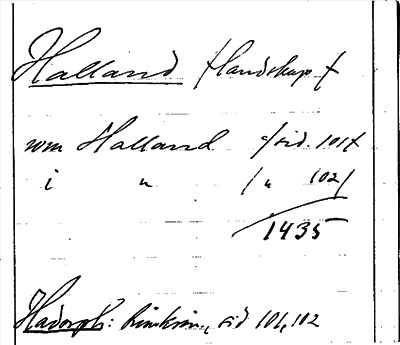 Halland (landskap)
som Halland (sid. 101)
i " (" 102)
1435
Hadorph: Rimkrön., sid 101, 102